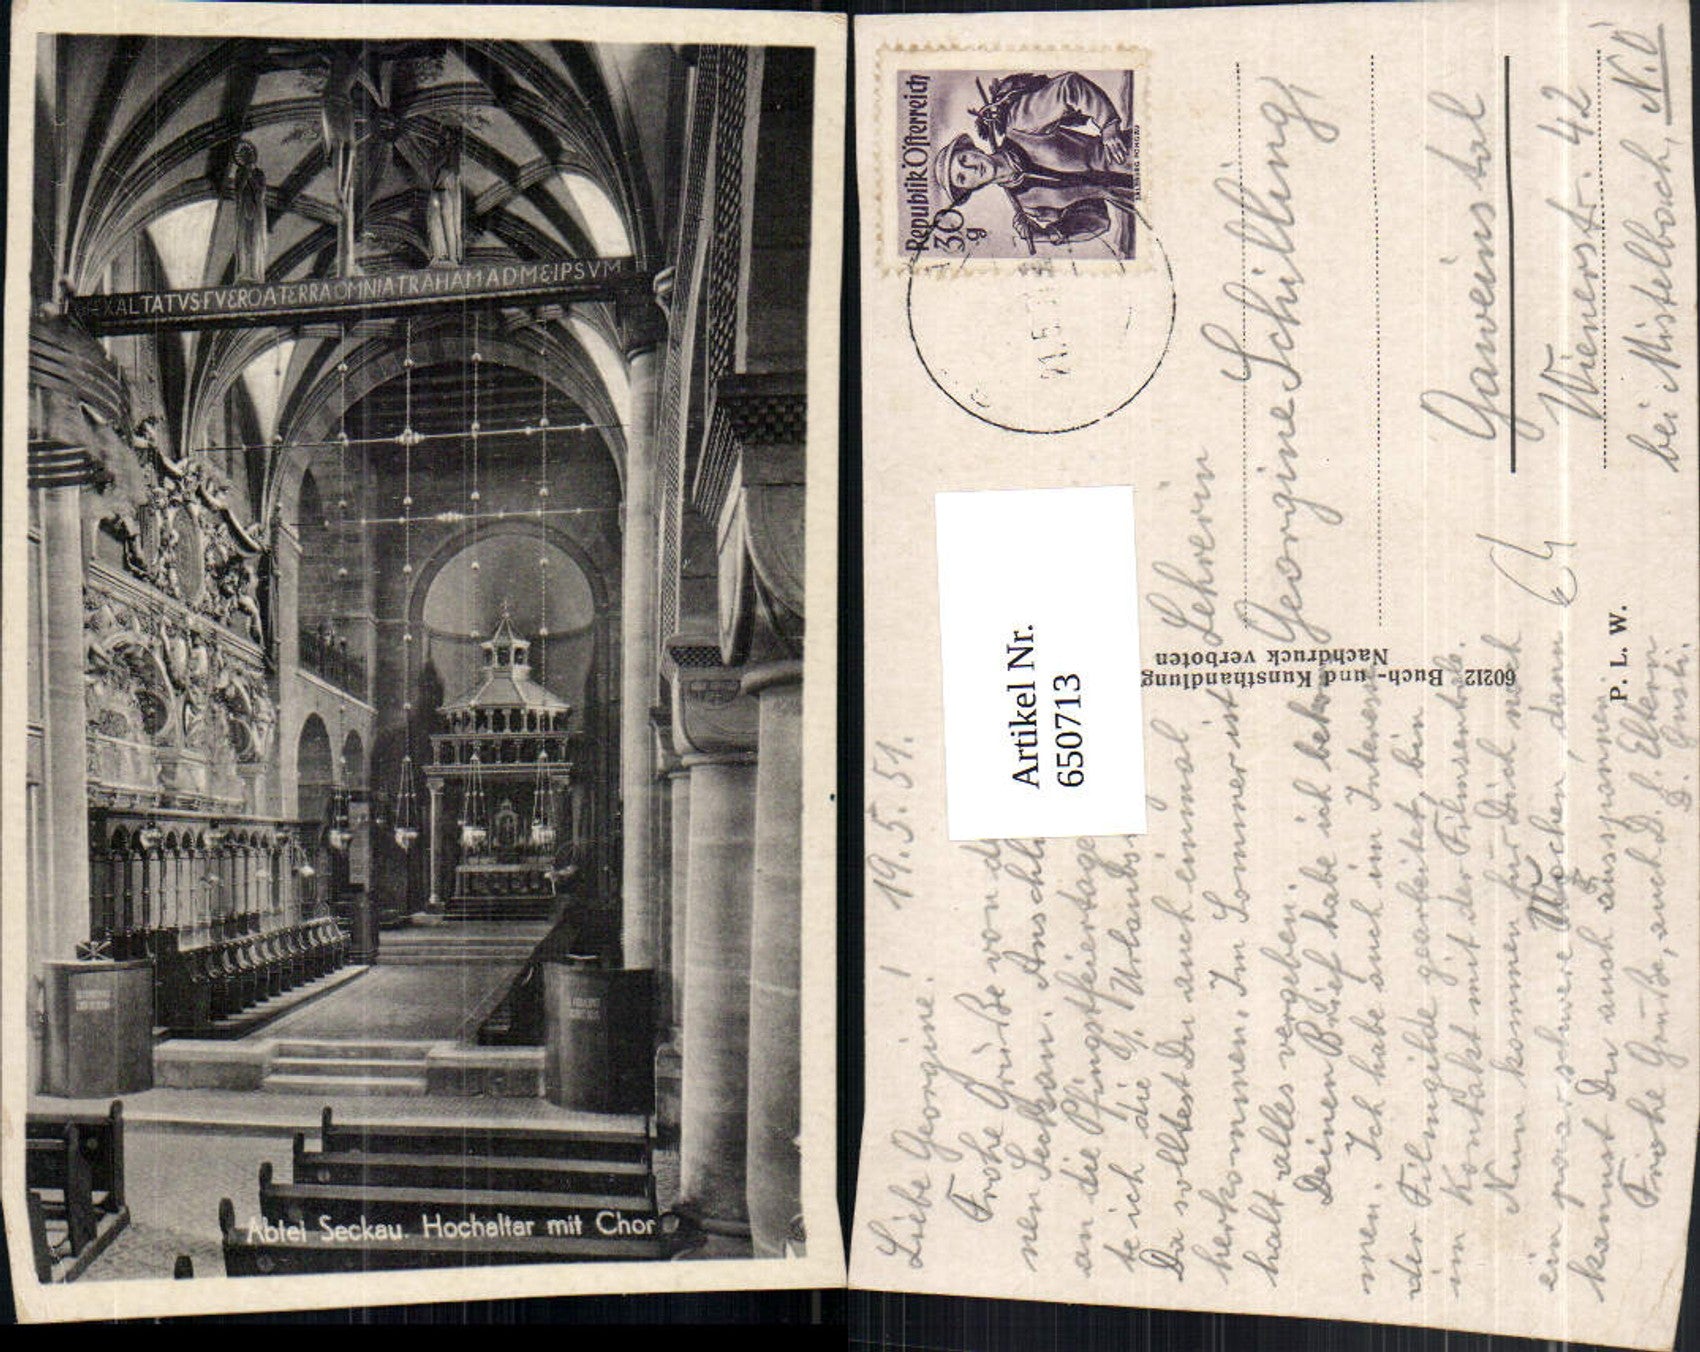 EXALTATVS FVERO A TERRA OMNIA TRAHAM AD MEIPSVM
Abtei Seckau. Hochaltar mit Chor
Republik Österreich
30 g
21.5.
Artikel Nr.
6507713
60212 Buch- und Kunsthandlung
Nachdruck verboten
P. L. W.
19.5.51.
Liebe Georgine!
Frohe Grüße von
nen Seckau.
an die Pfingstfeiertage
te ich die Urlaubs
Da solltest Du auch einmal
herkommen. Im Sommer ist
halt alles vergeben.
Deinen Brief habe ich
men. Ich habe auch im Interesse
der Filmgilde gearbeitet, bin
im Kontakt mit der Filmzentrale.
Nun kommen für Dich noch
ein paar schwere Wochen, dann
kannst Du ausspannen
Frohe Grüße, auch D. l. Eltern
D. Gusti.
Lehrerin
Georgine Schilling
Gaweinstal
Wienerstr. 42
bei Mistelbach, N.Ö